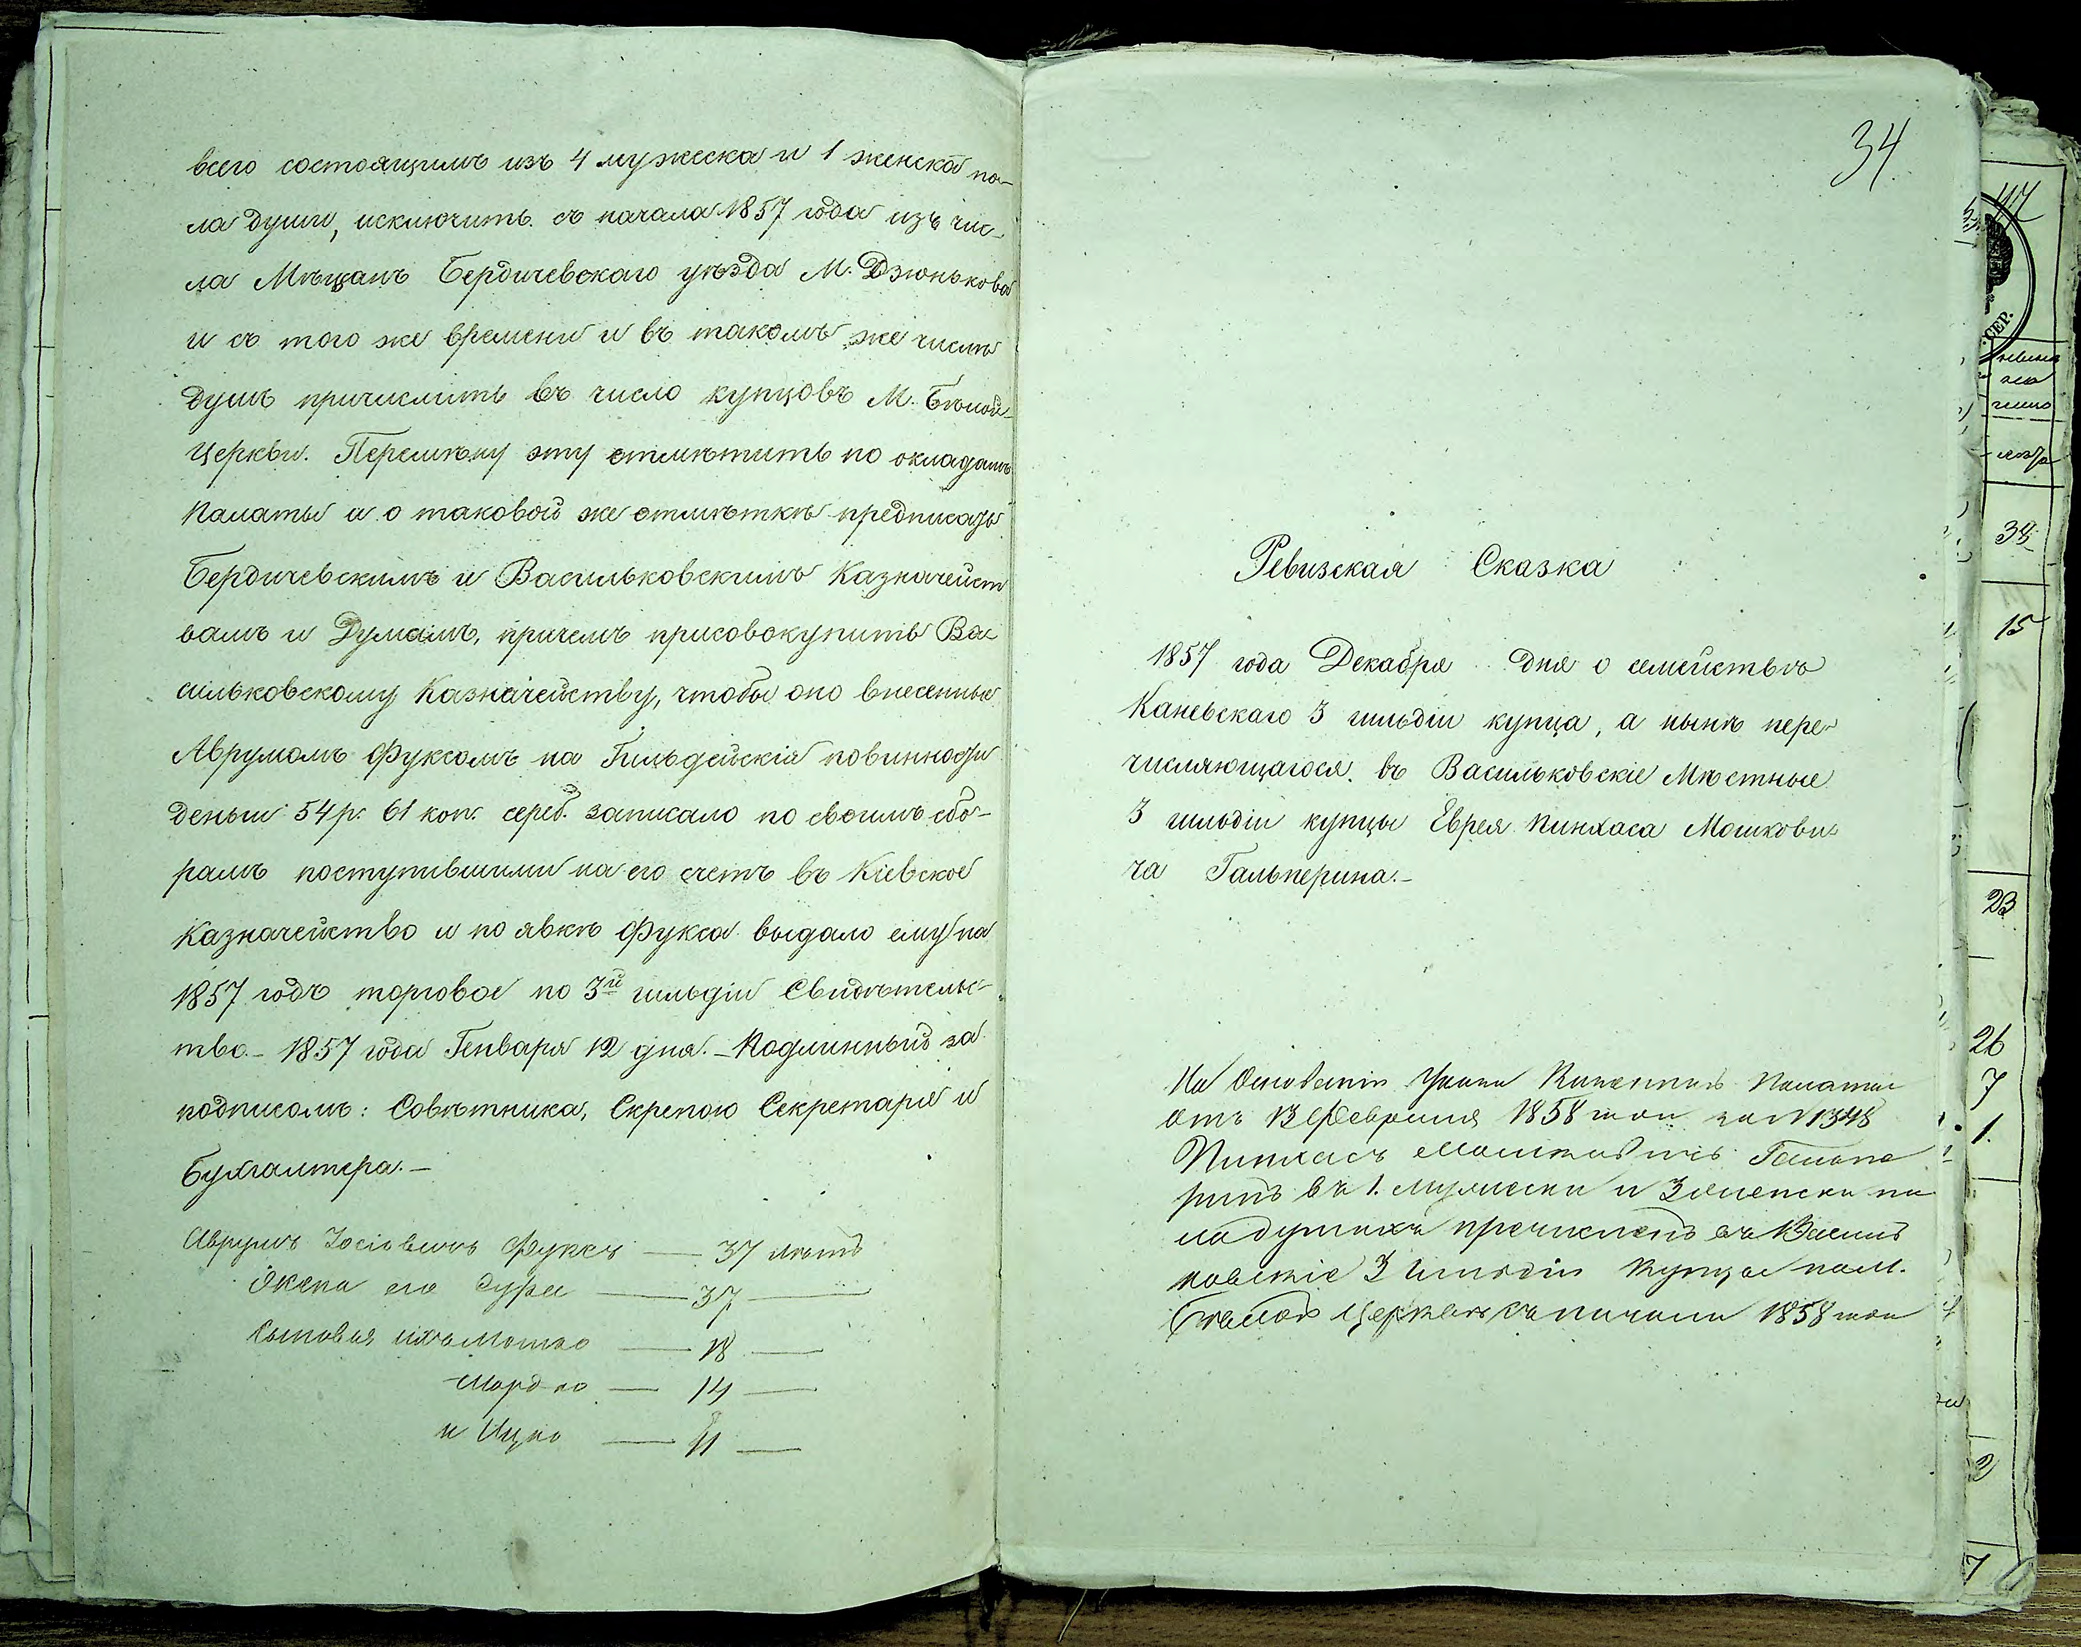 всего состоящимъ изъ 4 мужеска и 1 женска по-
ла души, исключить съ начала 1857 года изъ чис-
ла Мѣщанъ Бердичевскаго уѣзда М. Дзюнькова
и съ того же времени и въ такомъ же числѣ
душъ причислить въ число купцовъ М. Бѣлой-
Церкви. Перемѣну эту отмѣтить по окладамъ
Палаты и о таковой же отмѣткѣ предписать
Бердичевскимъ и Васильковскимъ Казначейст
вамъ и Думамъ, причемъ присовокупить Ва-
сильковскому Казначейству, чтобы оно внесенные
Аврумомъ Фуксомъ на Гильдейскія повинности
деньги 54 р. 61 коп. сереб. записало по своимъ сбо-
рамъ поступившими на его счетъ въ Кіевское
Казначейство и по явкѣ Фукса выдало ему на
1857 годъ торговое по 3й гильдіи Свидѣтельс-
тво.- 1857 года Генваря 12 дня.- Подлинный за
подписомъ: Совѣтника, Скрепою Секретаря и
Бухгалтера.-
Аврумъ Іосіовичъ Фуксъ — 37 лѣтъ
Жена его Сура — 37 —
Сыновья ихъ Мошко — 18 —
Мордко — 14 —
и Ицко — 11 —
34
Ревизская Сказка
1857 года Декабря дня о семействѣ
Каневскаго 3 гильдіи купца, а нынѣ пере-
числяющагося въ Васильковскіе Мѣстные
3 гильдіи купцы Еврея Пинхаса Мошкови-
ча Гальперина.-
На Основаніи Указа Казенной Палаты
отъ 13 Февраля 1858 года за N 1348
Пинхасъ Мошковичъ Гальпе
ринъ въ 1. мужеска и 3 женска по
ла душахъ причисленъ въ Василь
ковскіе 3 Гильдіи Купцы по М.
Бѣлой Церкви съ начала 1858 года
34
15
23
26
7
1.